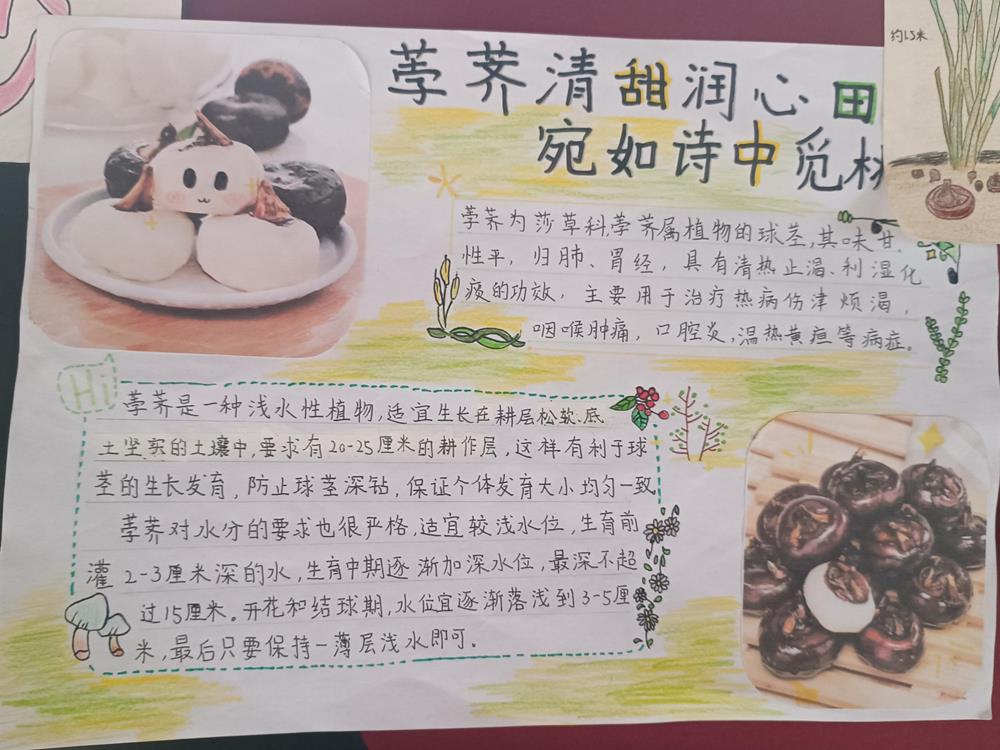 荸荠清甜润心田
宛如诗中觅
荸荠为莎草科荸荠属植物的球茎,其味甘.
性平,归肺、胃经,具有清热止渴、利湿化
痰的功效,主要用于治疗热病伤津烦渴,
咽喉肿痛,口腔炎,温热黄疸等病症。
Hi
荸荠是一种浅水性植物,适宜生长在耕层松软.底
土坚实的土壤中,要求有20-25厘米的耕作层,这样有利于球
茎的生长发育,防止球茎深钻,保证个体发育大小均匀一致
荸荠对水分的要求也很严格,适宜较浅水位,生育前
灌2-3厘米深的水,生育中期逐渐加深水位,最深不超
过15厘米。开花和结球期,水位宜逐渐落浅到3-5厘
米,最后只要保持一薄层浅水即可.
约1.5米